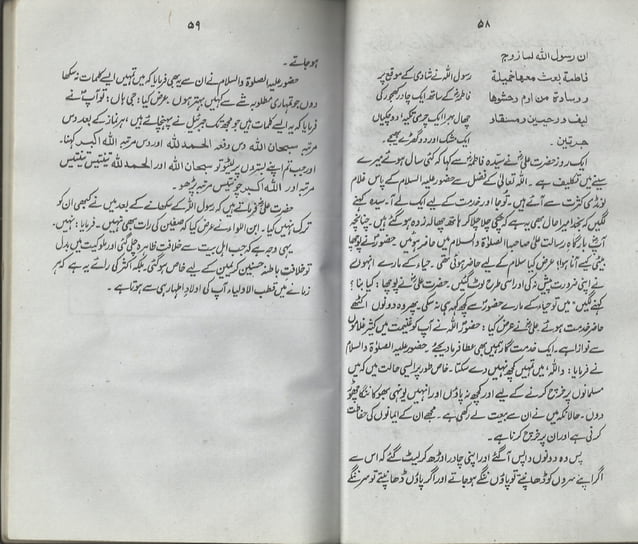 ۵۸
ان رسول الله لما زوج
فاطمة بعث معها خميلة
و وسادة من ادم وحشوها
ليف ورحيين وسقاء
جرتين ۔
رسول اللہ نے شادی کے موقع پر
فاطمہؓ کے ساتھ ایک چادر کھجور کی
چھال بھرا ایک چرمی تکیہ، دو چکیاں
ایک مشک اور دو گھڑے بھیجے۔
ایک روز حضرت علیؓ نے سیدہ فاطمہؓ سے کہا کہ کئی سال ہوئے میرے
سینے میں تکلیف ہے۔ اللہ تعالیٰ کے فضل سے حضور علیہ السلام کے پاس غلام
لونڈی کثرت سے آئے ہیں۔ تو جا اور خدمت کے لیے ایک لے آ۔ سیدہ کہنے
لگیں کہ بخدا میرا حال بھی یہ ہے کہ چکی چلا چلا کر ہاتھ چھالہ زدہ ہو گئے ہیں۔ چنانچہ
آپؓ بارگاہ رسالت علیٰ صاحبہا الصلوٰۃ والسلام میں حاضر ہوئیں۔ حضورؐ نے پوچھا
بیٹی کیسے آنا ہوا؟ عرض کیا سلام کے لیے حاضر ہوئی تھی۔ حیاء کے مارے انہوں نے
اپنی ضرورت پیش نہ کی اور اسی طرح لوٹ گئیں۔ حضرت علیؓ نے پوچھا: کیا بنا؟
کہنے لگیں: میں تو حیاء کے مارے حضورؐ سے کچھ کہہ ہی نہ سکی۔ پھر وہ دونوں اکٹھے
حاضر خدمت ہوئے۔ علیؓ نے عرض کیا: حضورؐ اللہ نے آپ کو غنیمت میں کثیر غلاموں
سے نوازا ہے۔ ایک خدمت گار ہمیں بھی عطا فرما دیجئے۔ حضور علیہ الصلوٰۃ والسلام
نے فرمایا: واللہ، میں تمہیں کچھ نہیں دے سکتا۔ خاص طور پر ایسی حالت میں کہ میں
مسلمانوں پر خرچ کرنے کے لیے اور کچھ نہ پاؤں اور انہیں یونہی بھوکا ننگا چھوڑ
دوں۔ حالانکہ میں نے ان سے بیعت لے رکھی ہے۔ مجھے ان کے ایمانوں کی حفاظت
کرنی ہے اور ان پر خرچ کرنا ہے۔
پس وہ دونوں واپس آ گئے اور اپنی چادر اوڑھ کر لیٹ گئے کہ اس سے
اگر اپنے سروں کو ڈھانپتے تو پاؤں ننگے ہو جاتے اور اگر پاؤں ڈھانپتے تو سر ننگے
۵۹
ہو جاتے۔
حضور علیہ الصلوٰۃ والسلام نے ان سے یہ بھی فرمایا کہ میں تمہیں ایسے کلمات نہ سکھا
دوں جو تمہاری مطلوبہ شے سے کہیں بہتر ہوں۔ عرض کیا: جی ہاں: تو آپؐ نے
فرمایا کہ یہ ایسے کلمات ہیں جو مجھ تک جبرئیل نے پہنچائے ہیں۔ ہر نماز کے بعد دس
مرتبہ سبحان اللہ دس دفعہ الحمد للہ اور دس مرتبہ اللہ اکبر کہنا۔
اور جب تم اپنے بستروں پر لیٹو تو سبحان اللہ اور الحمد للہ تینتیس تینتیس
مرتبہ اور اللہ اکبر چونتیس مرتبہ پڑھو۔
حضرت علیؓ فرماتے ہیں کہ رسول اللہؐ کے سکھانے کے بعد میں نے کبھی ان کو
ترک نہیں کیا۔ ابن الکواء نے عرض کیا کہ صفین کی رات بھی نہیں۔ فرمایا: نہیں۔
یہی وجہ ہے کہ جب اہل بیت سے خلافت ظاہرہ چلی گئی اور ملوکیت میں بدل گئی
تو خلافت باطنہ حسنین کریمین کے لیے خاص ہو گئی۔ بلکہ اکثر کی رائے یہ ہے کہ ہر
زمانے میں قطب الاولیاء آپ کی اولاد اطہار ہی سے ہوتا ہے۔